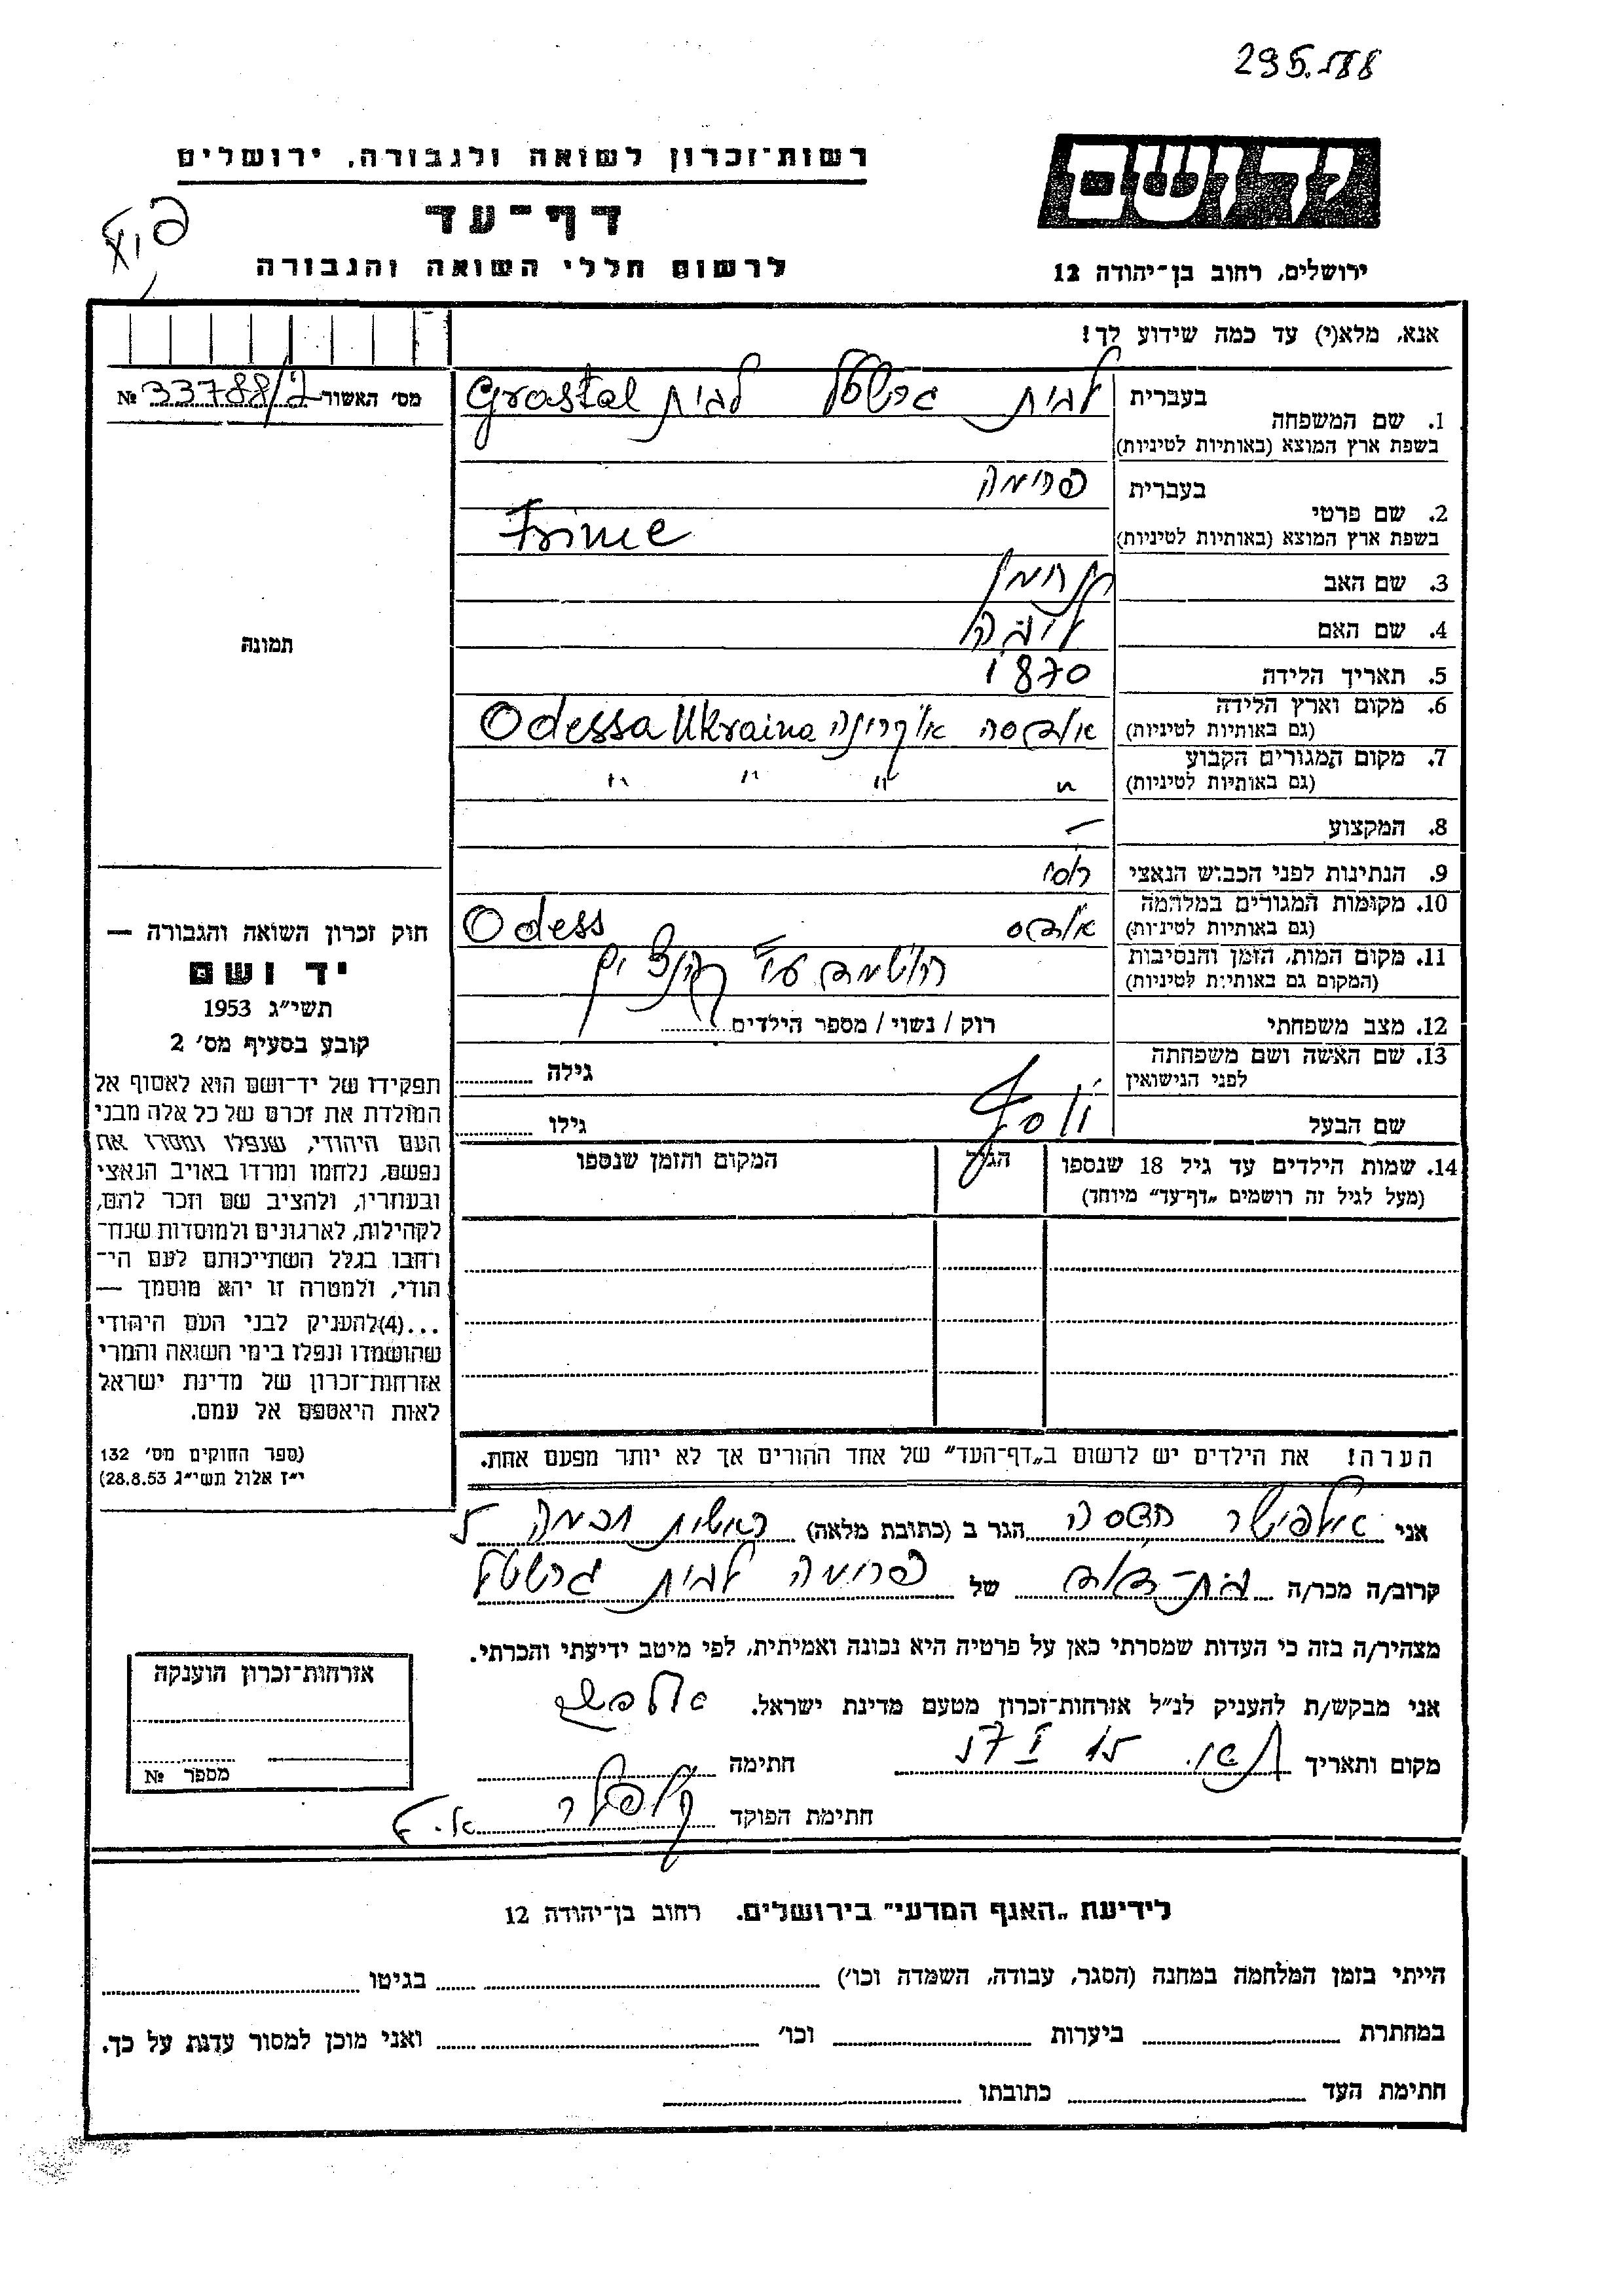 295.188
יד ושם
רשות־זכרון לשואה ולגבורה, ירושלים
דף־עד
לרשום חללי השואה והגבורה
ירושלים, רחוב בן־יהודה 12
אנא, מלא(י) עד כמה שידוע לך!
מס׳ האשור № 33788/2
1. שם המשפחה בעברית לבית גרשטל לבית Grastal
בשפת ארץ המוצא (באותיות לטיניות)
2. שם פרטי בעברית פרימה
בשפת ארץ המוצא (באותיות לטיניות) Frime
3. שם האב נחמן
4. שם האם
5. תאריך הלידה 1870
6. מקום וארץ הלידה אודסה אוקרינה Odessa Ukraina
(גם באותיות לטיניות)
7. מקום המגורים הקבוע " " " "
(גם באותיות לטיניות)
8. המקצוע –
9. הנתינות לפני הכבוש הנאצי רוסי
10. מקומות המגורים במלחמה אודס Odess
(גם באותיות לטיניות)
11. מקום המות, הזמן והנסיבות הושמדה ע״י הנאצים
(המקום גם באותיות לטיניות)
12. מצב משפחתי רוק / נשוי / מספר הילדים
13. שם האשה ושם משפחתה גילה
לפני הנישואין
שם הבעל יוסף גילו
14. שמות הילדים עד גיל 18 שנספו הגיל המקום והזמן שנספו
(מעל לגיל זה רושמים „דף־עד״ מיוחד)
הערה! את הילדים יש לרשום ב„דף־העד״ של אחד ההורים אך לא יותר מפעם אחת.
תמונה
חוק זכרון השואה והגבורה —
יד ושם
תשי״ג 1953
קובע בסעיף מס׳ 2
תפקידו של יד־ושם הוא לאסוף אל
המולדת את זכרם של כל אלה מבני
העם היהודי, שנפלו ומסרו את
נפשם, נלחמו ומרדו באויב הנאצי
ובעוזריו, ולהציב שם וזכר להם,
לקהילות, לארגונים ולמוסדות שנח־
רבו בגלל השתייכותם לעם הי־
הודי, ולמטרה זו יהא מוסמך —
...(4)להעניק לבני העם היהודי
שהושמדו ונפלו בימי השואה והמרי
אזרחות־זכרון של מדינת ישראל
לאות היאספם אל עמם.
(ספר החוקים מס׳ 132
י״ז אלול תשי״ג 28.8.53)
אני הדסה הגר ב (כתובת מלאה) ראשית חכמה 5
קרוב/ה מכר/ה בת-דוד של פרומה לבית גרשטל
מצהיר/ה בזה כי העדות שמסרתי כאן על פרטיה היא נכונה ואמיתית, לפי מיטב ידיעתי והכרתי.
אני מבקש/ת להעניק לנ״ל אזרחות־זכרון מטעם מדינת ישראל.
מקום ותאריך חתימה
חתימת הפוקד
אזרחות־זכרון הוענקה
מספר №
לידיעת „האגף המדעי״ בירושלים. רחוב בן־יהודה 12
הייתי בזמן המלחמה במחנה (הסגר, עבודה, השמדה וכו׳) בגיטו
במחתרת ביערות וכו׳ ואני מוכן למסור עדות על כך.
חתימת העד כתובתו